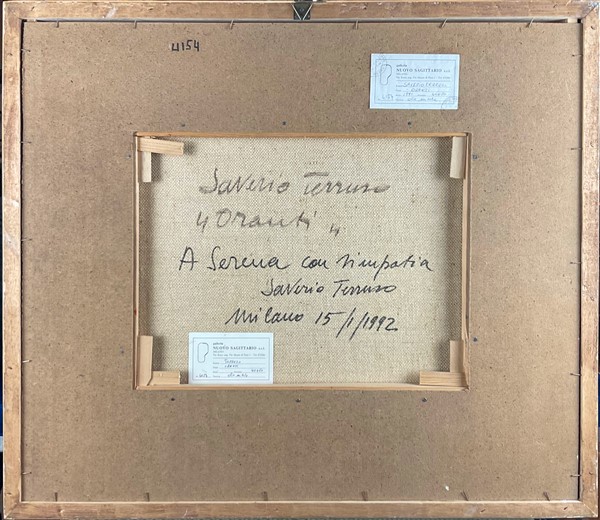 4154
galleria
NUOVO SAGITTARIO s.r.l.
MILANO
Saverio Terruso
"Oranti"
A Serena con simpatia
Saverio Terruso
Milano 15/1/1992
galleria
NUOVO SAGITTARIO s.r.l.
MILANO